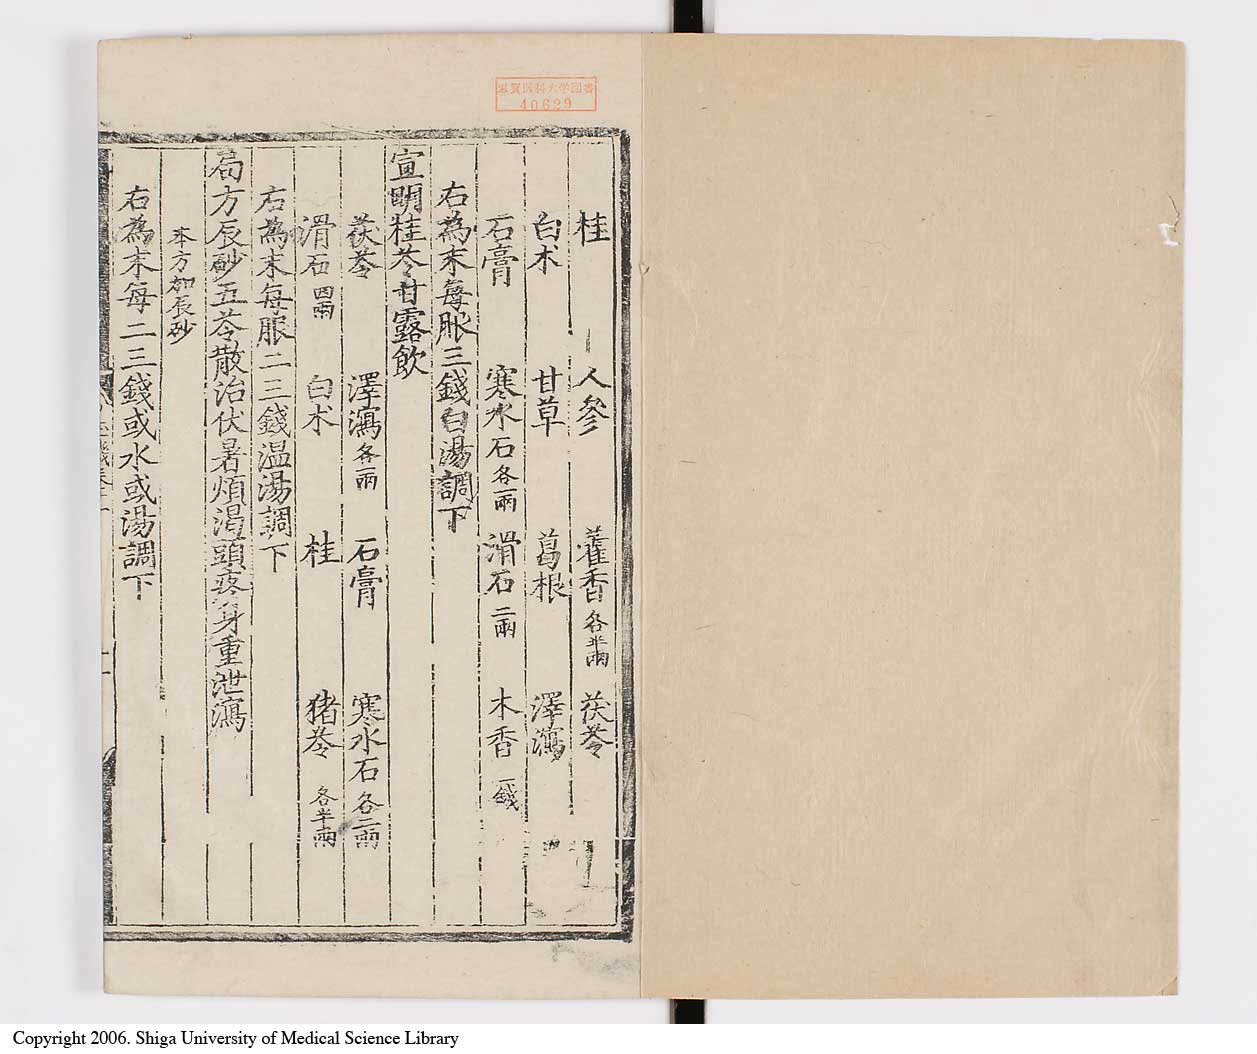 滋賀医科大学図書
40629
桂 人參 藿香各半兩 茯苓
白术 甘草 葛根 澤瀉
石膏 寒水石各一兩 滑石二兩 木香一錢
右為末每服三錢白湯調下
宣明桂苓甘露飲
茯苓 澤瀉各一兩 石膏 寒水石各二兩
滑石四兩 白术 桂 猪苓各半兩
右為末每服二三錢温湯調下
局方辰砂五苓散治伏暑煩渴頭疼身重泄瀉
本方加辰砂
右為末每二三錢或水或湯調下
Copyright 2006. Shiga University of Medical Science Library